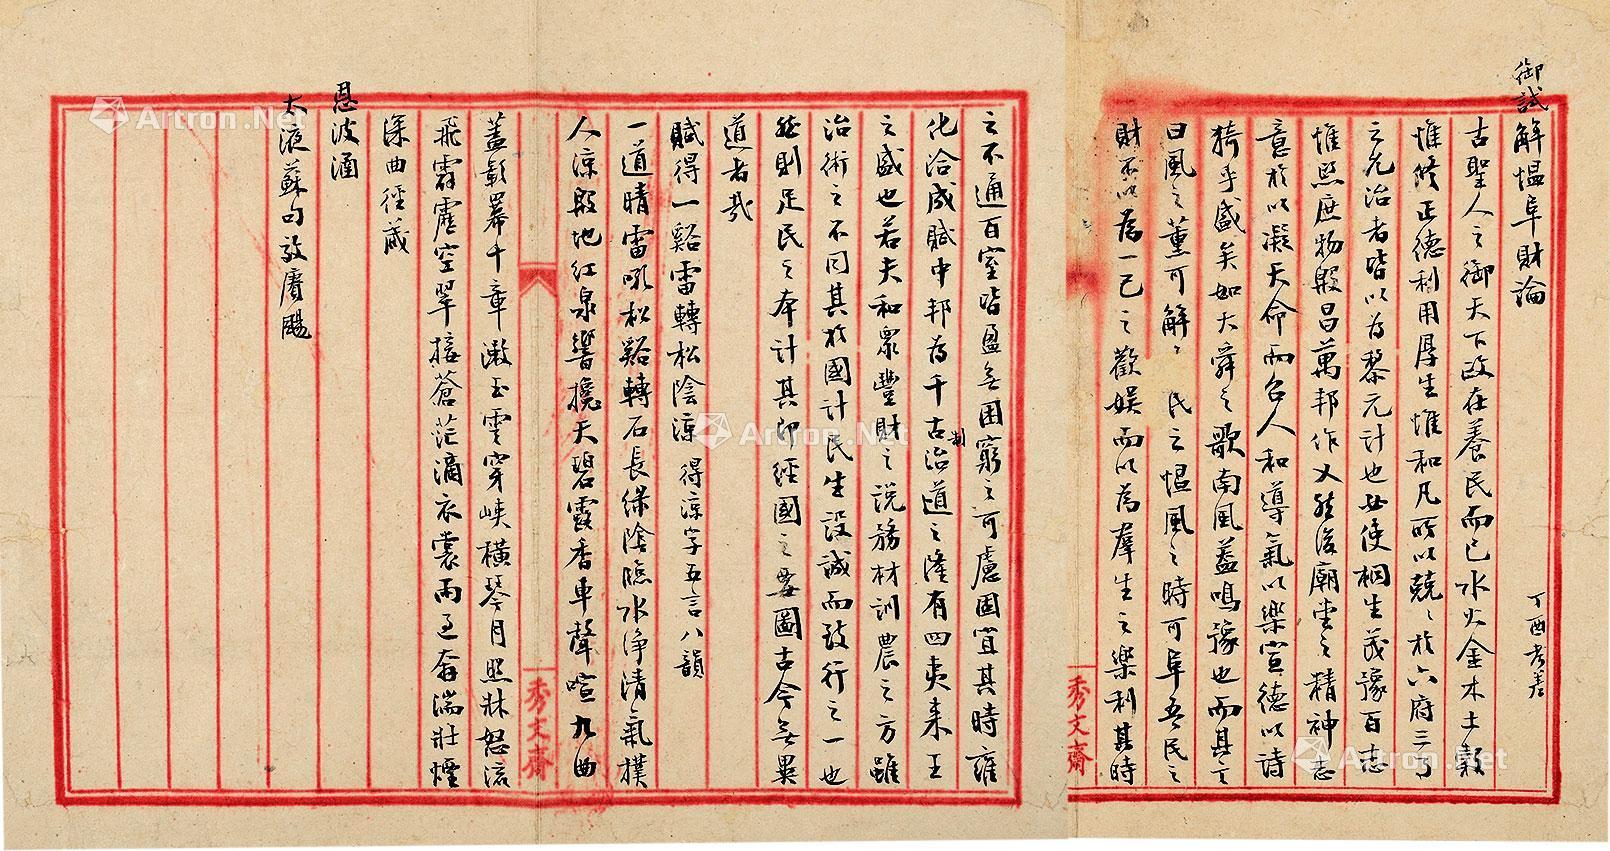 御試解慍阜財論 丁酉考差
古聖人之御天下政在養民而已水火金木土穀
惟修正德利用厚生惟和凡所以兢〻於六府三事
之允治者皆以為黎元計也毋使桐生茂豫百志
惟熙庶物殷昌萬邦作乂然後廟堂之精神志
意於以凝天命而召人和導氣以樂宣德以詩
猗乎盛矣如大舜之歌南風蓋鳴豫也而其言
曰風之薰可解〻民之慍風之時可阜吾民之
財不以為一己之歡娛而以為羣生之樂利其時
之不通百室皆盈無困窮之可慮固宜其時雍
化洽成賦中邦為千古治道之隆有四夷來王
制
之盛也若夫和眾豐財之說務材訓農之方雖
治術之不同其於國計民生設誠而致行之一也
然則足民之本計其即經國之要圖古今無異
道者哉
賦得一谿雷轉松陰涼 得涼字五言八韻
一道晴雷吼松谿轉石長綠陰臨水淨清氣撲
人涼殷地紅泉響攙天碧霞香車聲喧九曲
蓋影羃千章漱玉雲穿峽橫琴月照牀怒流
飛霤處空翠接蒼茫滴衣裳雨過奔湍壯煙
深曲徑藏
恩波涵
太液蘇句敬賡颺
秀文齋
秀文齋
Artron.Net
Artron.Net
Artron.Net
Artron.Net